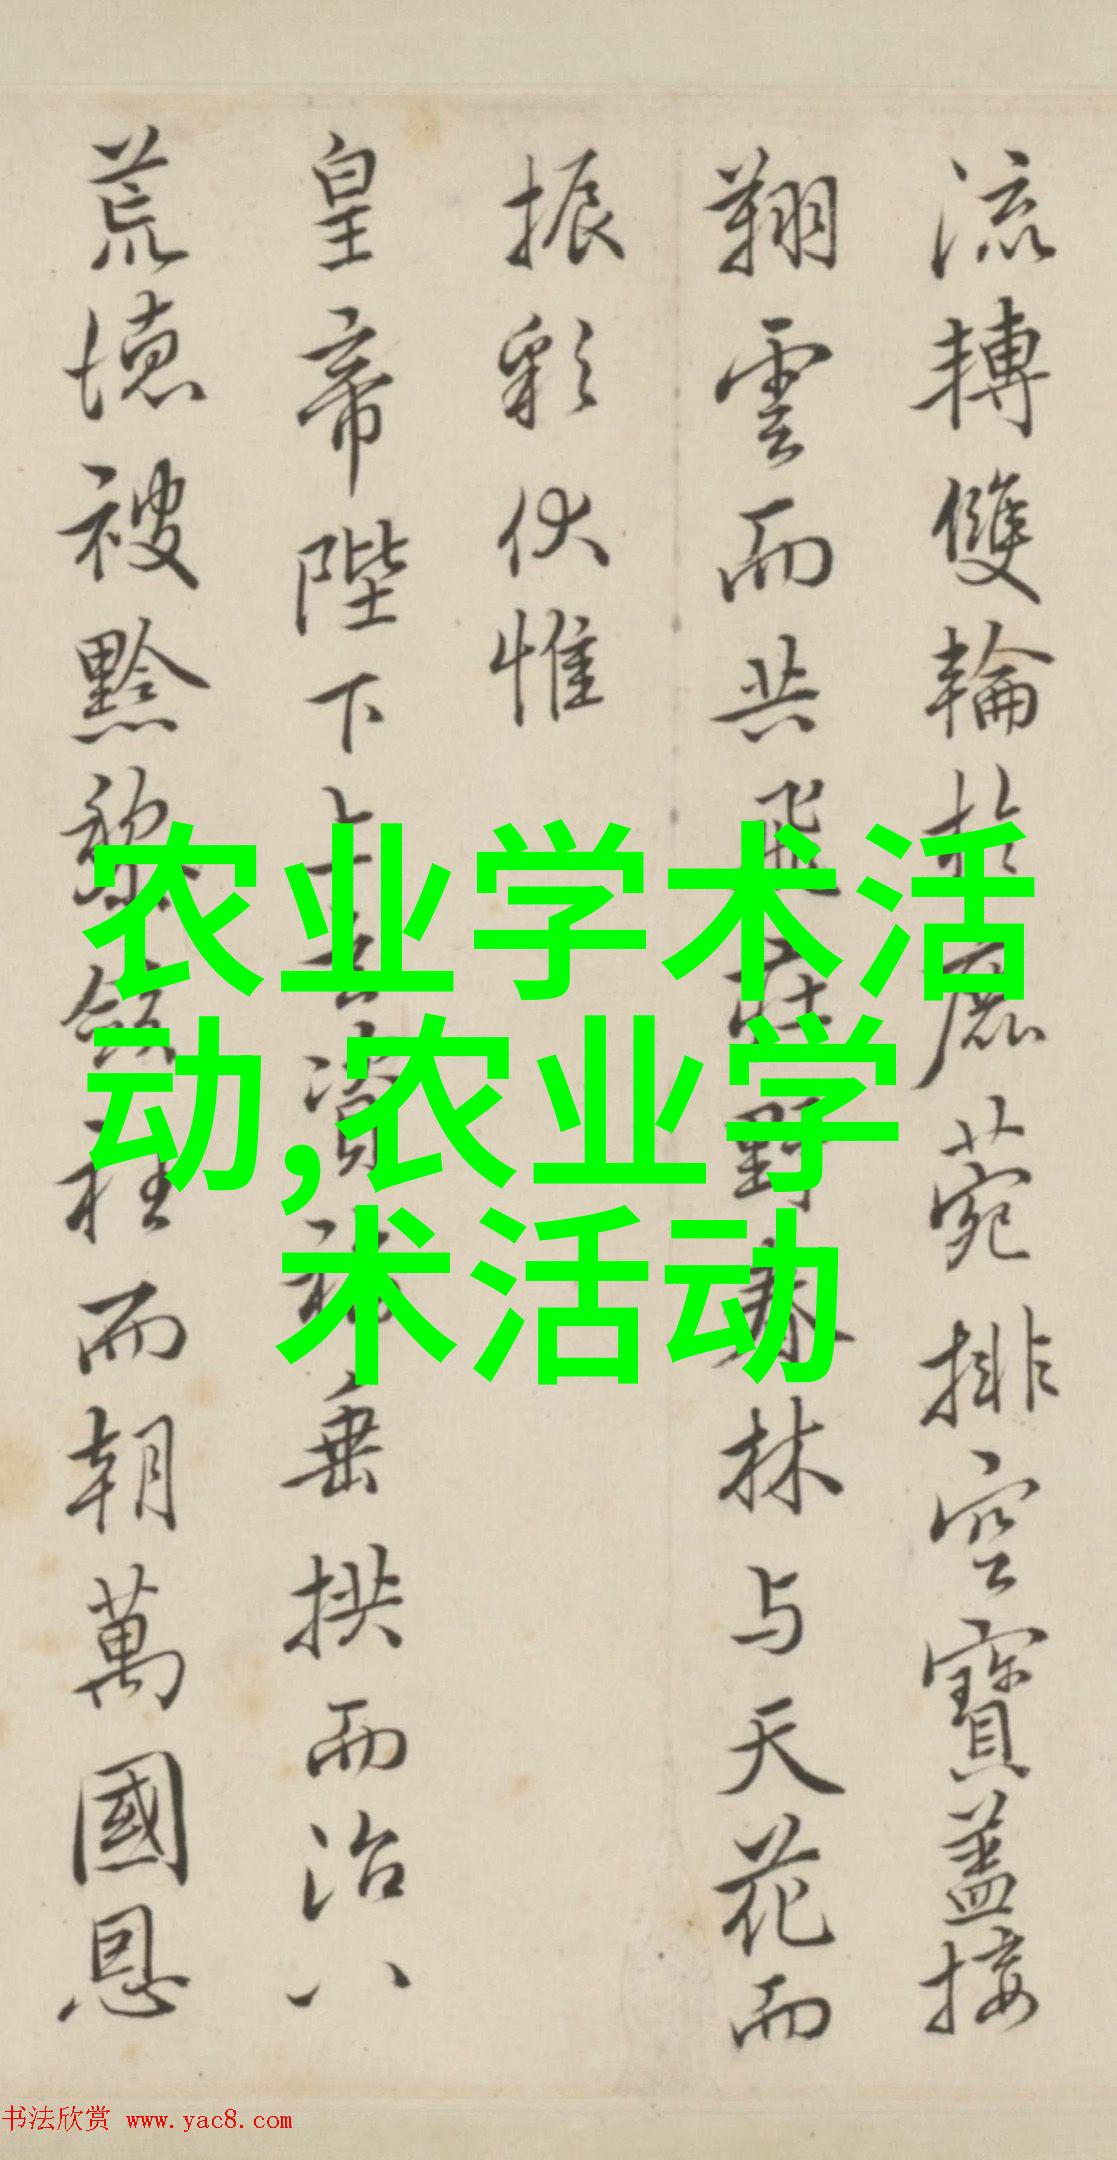 流轉雙輪於鹿菀排空寶蓋接
翔雲而共飛莊野春林与天花而
振彩伏惟
皇帝陛下上玄資福垂拱而治八
荒德被黔黎斂衽而朝萬國恩
农业学术活
动,农业学
术活动
书法欣赏 www.yac8.com